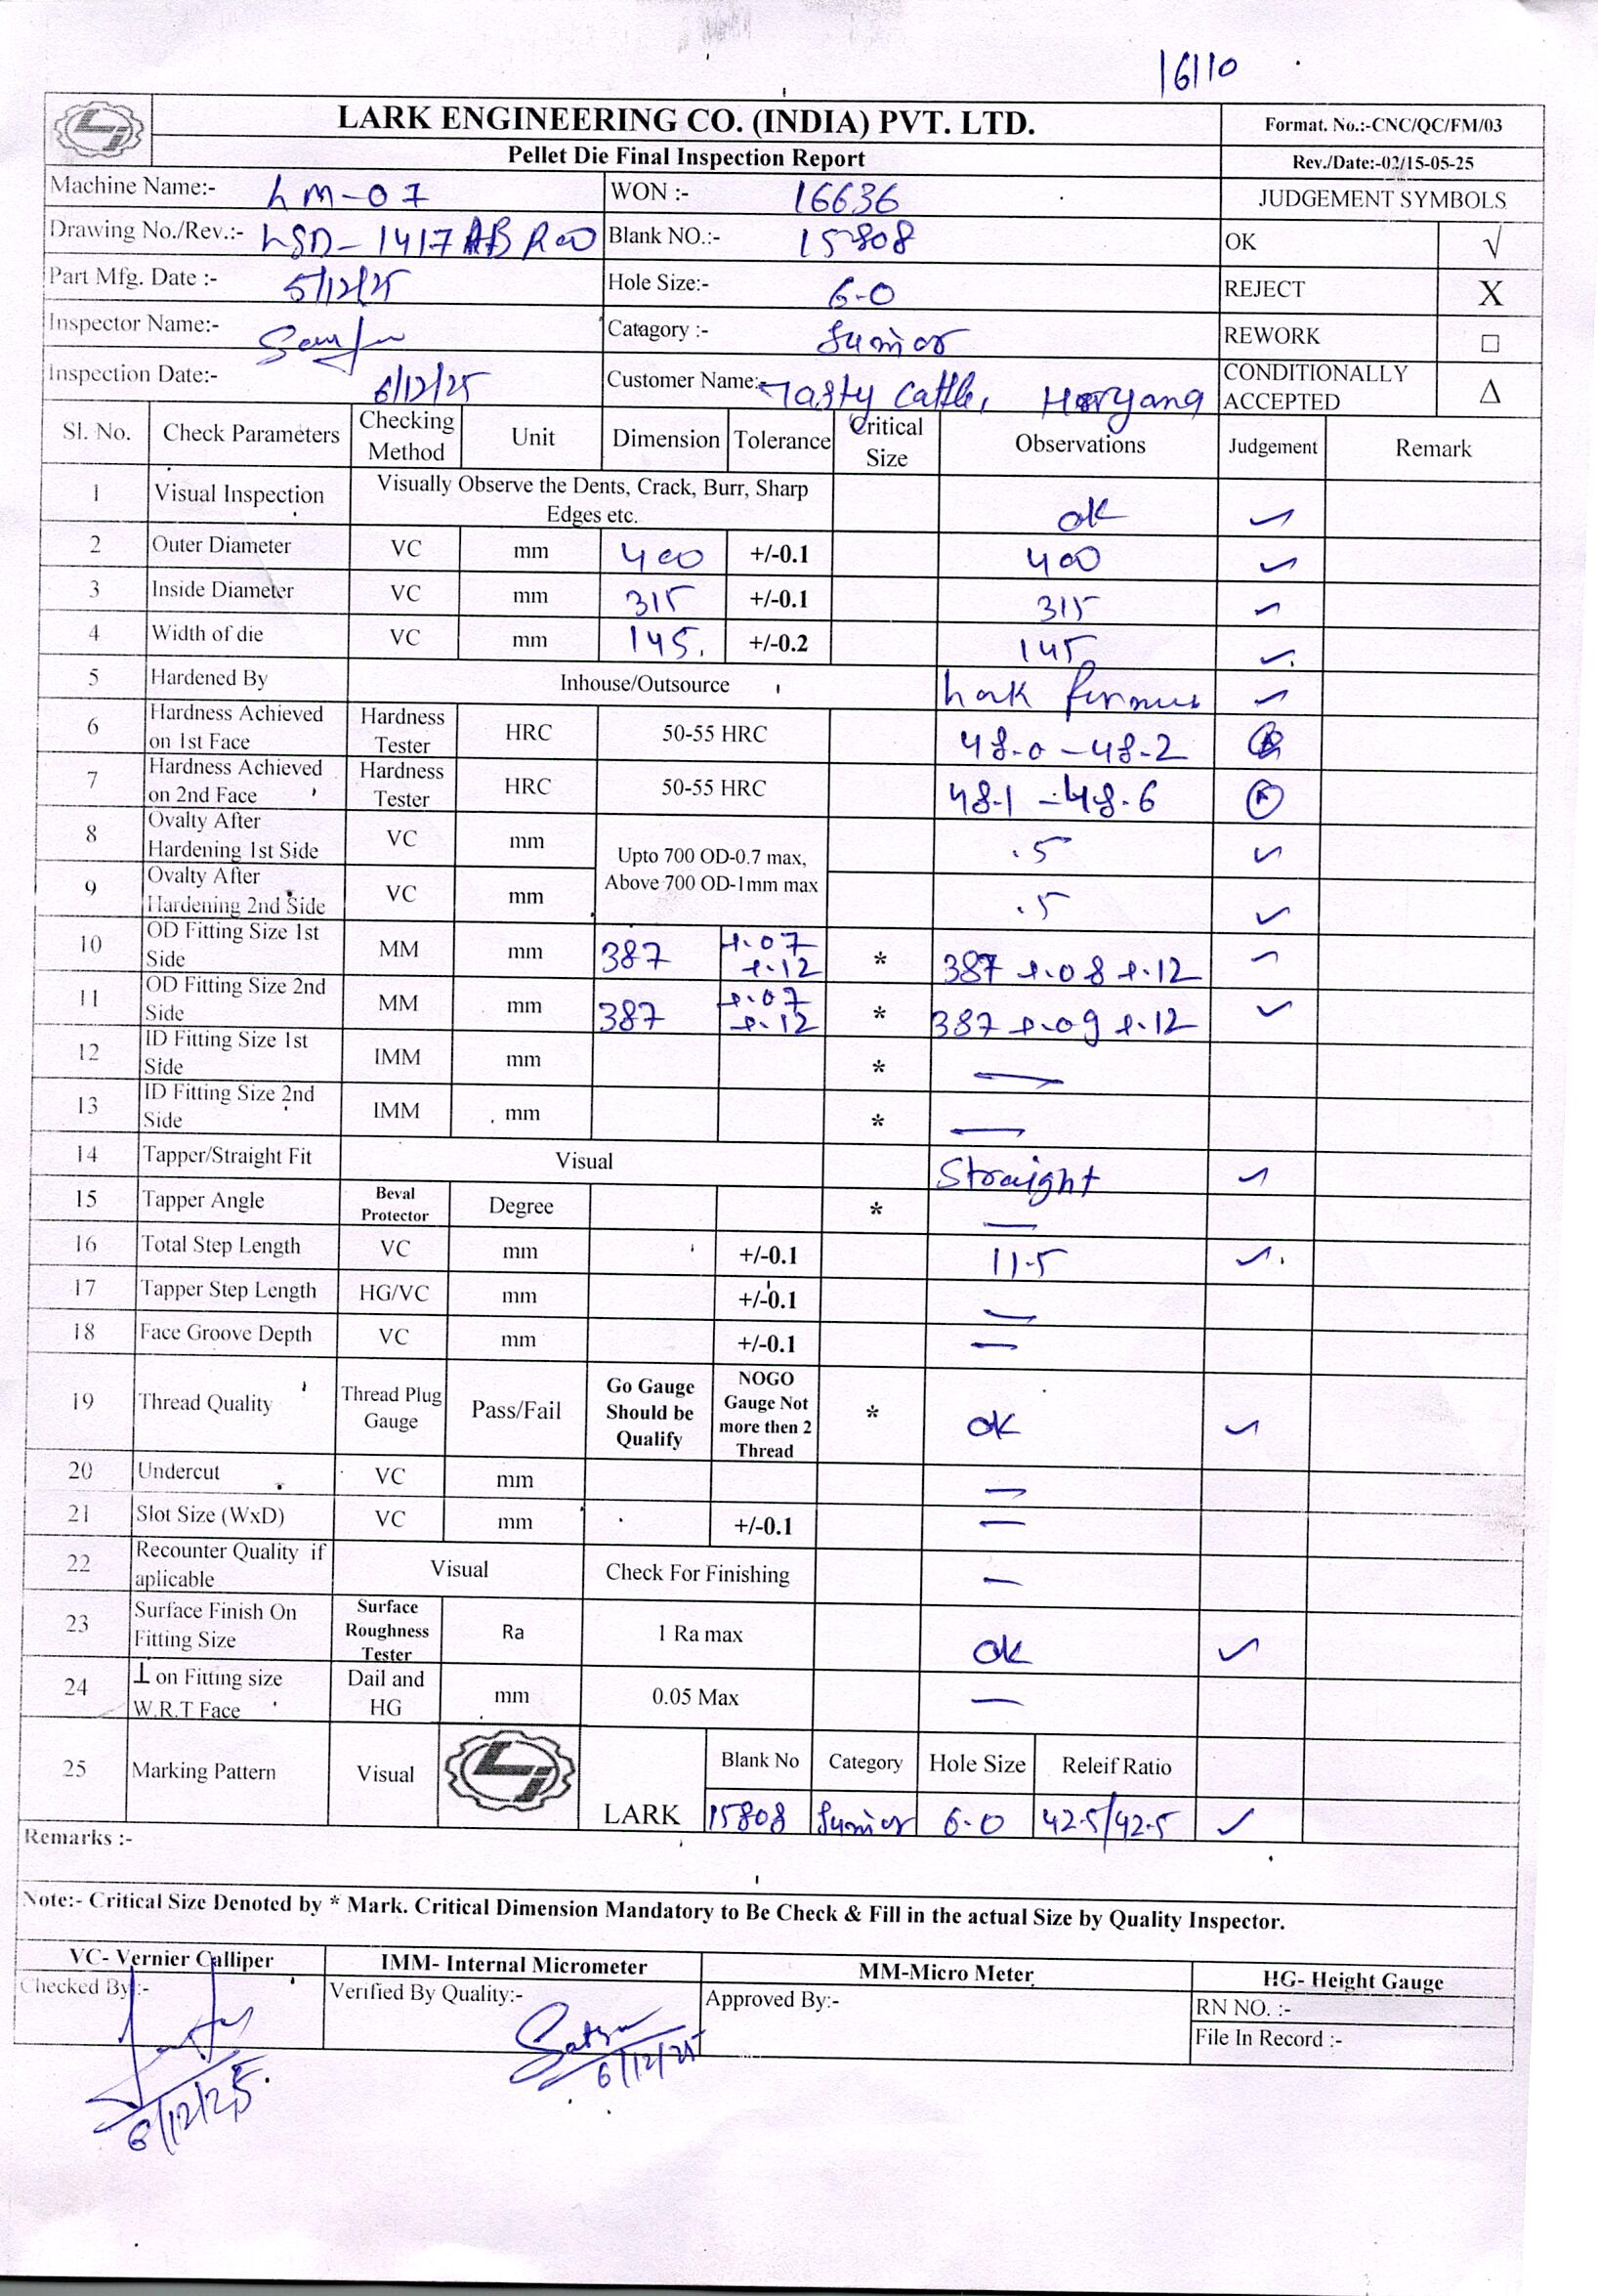 16110
LARK ENGINEERING CO. (INDIA) PVT. LTD.
Format. No.:-CNC/QC/FM/03
Pellet Die Final Inspection Report
Rev./Date:-02/15-05-25
Machine Name:- LM-07 WON :- 16636 JUDGEMENT SYMBOLS
Drawing No./Rev.:- LSD-1417 AB R00 Blank NO.:- 15808 OK √
Part Mfg. Date :- 5/12/25 Hole Size:- 6.0 REJECT X
Inspector Name:- Catagory :- Junior REWORK □
Inspection Date:- 6/12/25 Customer Name:- Tasty Cattle, Haryana CONDITIONALLY ACCEPTED Δ
Sl. No. Check Parameters Checking Method Unit Dimension Tolerance Critical Size Observations Judgement Remark
1 Visual Inspection Visually Observe the Dents, Crack, Burr, Sharp Edges etc. ok ✓
2 Outer Diameter VC mm 400 +/-0.1 400 ✓
3 Inside Diameter VC mm 315 +/-0.1 315 ✓
4 Width of die VC mm 145. +/-0.2 145 ✓
5 Hardened By Inhouse/Outsource Lark ✓
6 Hardness Achieved on 1st Face Hardness Tester HRC 50-55 HRC 48.0 - 48.2
7 Hardness Achieved on 2nd Face Hardness Tester HRC 50-55 HRC 48.1 - 48.6
8 Ovalty After Hardening 1st Side VC mm Upto 700 OD-0.7 max, Above 700 OD-1mm max .5 ✓
9 Ovalty After Hardening 2nd Side VC mm .5 ✓
10 OD Fitting Size 1st Side MM mm 387 +.07 +.12 * 387 +.08 +.12 ✓
11 OD Fitting Size 2nd Side MM mm 387 +.07 +.12 * 387 +.09 +.12 ✓
12 ID Fitting Size 1st Side IMM mm * —
13 ID Fitting Size 2nd Side IMM mm * —
14 Tapper/Straight Fit Visual Straight ✓
15 Tapper Angle Beval Protector Degree * —
16 Total Step Length VC mm +/-0.1 11.5 ✓
17 Tapper Step Length HG/VC mm +/-0.1 —
18 Face Groove Depth VC mm +/-0.1 —
19 Thread Quality Thread Plug Gauge Pass/Fail Go Gauge Should be Qualify NOGO Gauge Not more then 2 Thread * ok ✓
20 Undercut VC mm —
21 Slot Size (WxD) VC mm +/-0.1 —
22 Recounter Quality if aplicable Visual Check For Finishing —
23 Surface Finish On Fitting Size Surface Roughness Tester Ra 1 Ra max ok ✓
24 ⊥ on Fitting size W.R.T Face Dail and HG mm 0.05 Max —
25 Marking Pattern Visual LARK Blank No Category Hole Size Releif Ratio
15808 Junior 6.0 42.5/42.5 ✓
Remarks :-
Note:- Critical Size Denoted by * Mark. Critical Dimension Mandatory to Be Check & Fill in the actual Size by Quality Inspector.
VC- Vernier Calliper IMM- Internal Micrometer MM-Micro Meter HG- Height Gauge
Checked By:- Verified By Quality:- Approved By:- RN NO. :-
File In Record :-
6/12/25
6/12/25